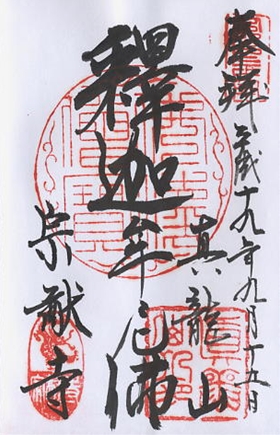 奉拝 平成十九年九月十五日
真龍山
釋迦牟尼佛
宗献寺